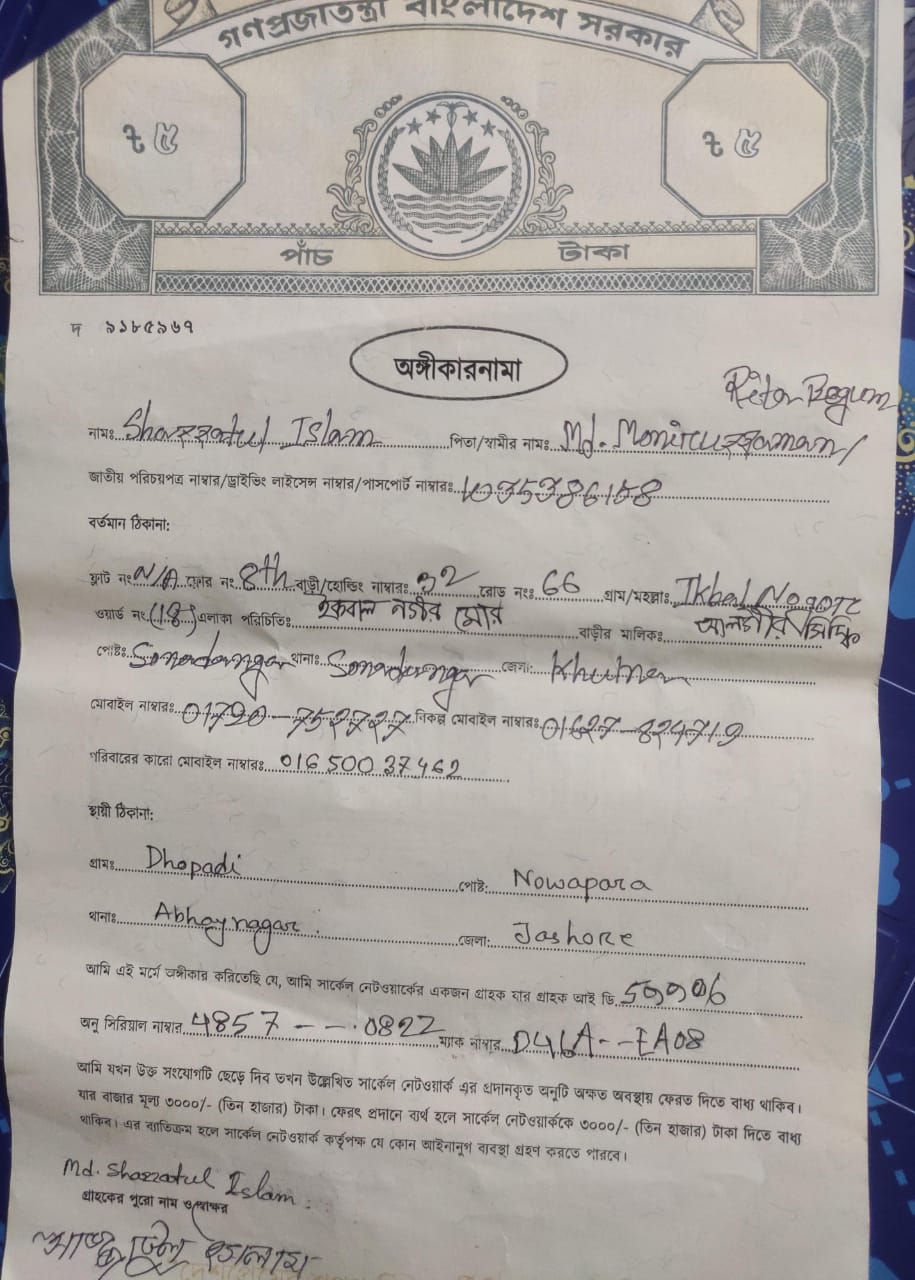 গণপ্রজাতন্ত্রী বাংলাদেশ সরকার
৳ ৫ ৳ ৫
পাঁচ টাকা
দ ৯১৮৫৯৬৭
অঙ্গীকারনামা
Begum
নামঃ Shazzatul Islam পিতা/স্বামীর নামঃ Md. Moniruzzaman/
জাতীয় পরিচয়পত্র নাম্বার/ড্রাইভিং লাইসেন্স নাম্বার/পাসপোর্ট নাম্বারঃ
বর্তমান ঠিকানা:
ফ্লাট নং N/A ফ্লোর নং 8th বাড়ী/হোল্ডিং নাম্বারঃ 32 রোড নংঃ 66 গ্রাম/মহল্লাঃ Ikbal Nogor
ওয়ার্ড নং (18) এলাকা পরিচিতিঃ ইকবাল নগর মোর বাড়ীর মালিকঃ
পোষ্টঃ Sonadanga থানাঃ Sonadanga জেলা: Khulna
মোবাইল নাম্বারঃ 01720-752727 বিকল্প মোবাইল নাম্বারঃ 01627-824719
পরিবারের কারো মোবাইল নাম্বারঃ 01650037462
স্থায়ী ঠিকানা:
গ্রামঃ Dhopadi পোষ্ট: Nowapara
থানাঃ Abhaynagar. জেলা: Jashore
আমি এই মর্মে অঙ্গীকার করিতেছি যে, আমি সার্কেল নেটওয়ার্কের একজন গ্রাহক যার গ্রাহক আই ডি
অনু সিরিয়াল নাম্বার 4857 --- 0822 ম্যাক নাম্বার D46A--EA08
আমি যখন উক্ত সংযোগটি ছেড়ে দিব তখন উল্লেখিত সার্কেল নেটওয়ার্ক এর প্রদানকৃত অনুটি অক্ষত অবস্থায় ফেরত দিতে বাধ্য থাকিব।
যার বাজার মূল্য ৩০০০/- (তিন হাজার) টাকা। ফেরৎ প্রদানে ব্যর্থ হলে সার্কেল নেটওয়ার্ককে ৩০০০/- (তিন হাজার) টাকা দিতে বাধ্য
থাকিব। এর ব্যতিক্রম হলে সার্কেল নেটওয়ার্ক কর্তৃপক্ষ যে কোন আইনানুগ ব্যবস্থা গ্রহণ করতে পারবে।
Md. Shazzatul Islam.
গ্রাহকের পুরো নাম ও স্বাক্ষর
ইসলাম